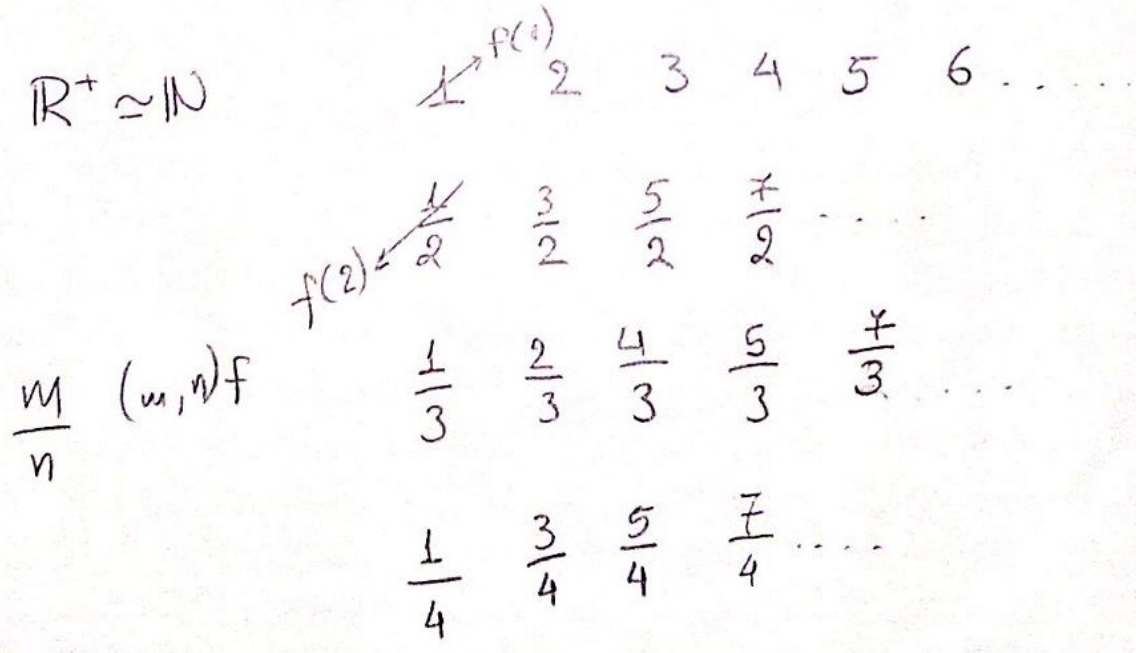 ℝ⁺ ≃ ℕ 1 f(1) 2 3 4 5 6 . . . . .
f(2) 1/2 3/2 5/2 7/2 . . . . .
m/n (m,n)f 1/3 2/3 4/3 5/3 7/3 . . . .
1/4 3/4 5/4 7/4 . . . . .